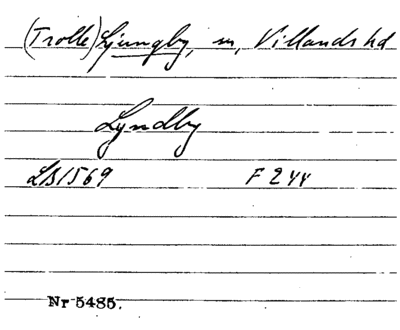 (Trolle) Ljungby, sn, Villands hd
Lyndby
LB1569 F 244
Nr 5485.